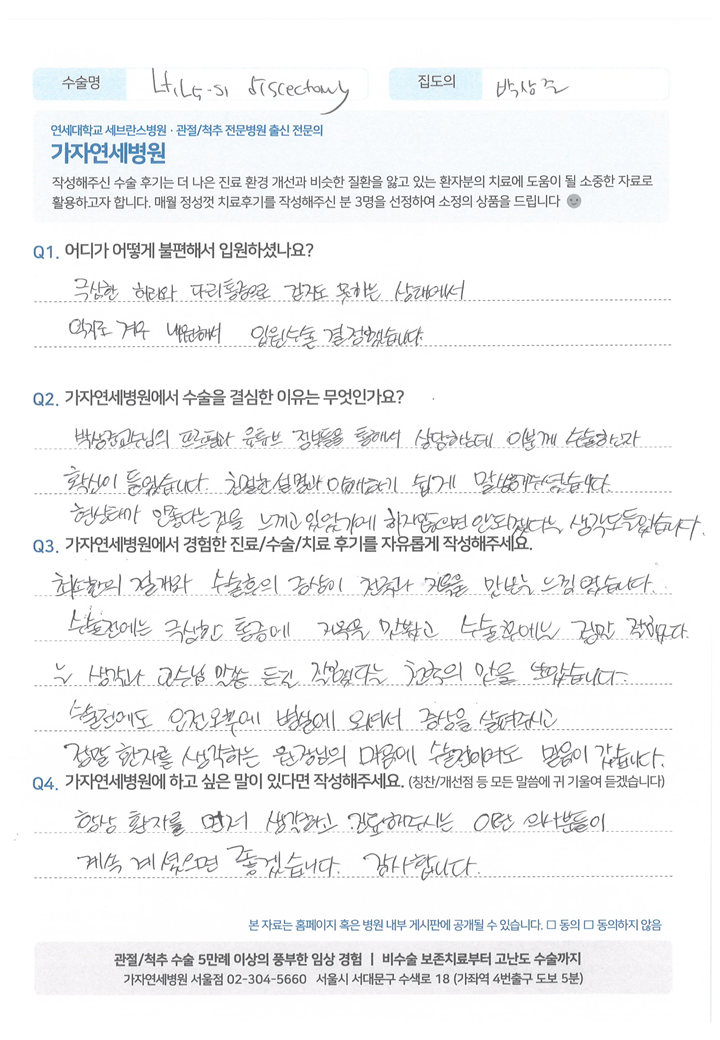 수술명 discectomy 집도의
연세대학교 세브란스병원 · 관절/척추 전문병원 출신 전문의
가자연세병원
작성해주신 수술 후기는 더 나은 진료 환경 개선과 비슷한 질환을 앓고 있는 환자분의 치료에 도움이 될 소중한 자료로
활용하고자 합니다. 매월 정성껏 치료후기를 작성해주신 분 3명을 선정하여 소정의 상품을 드립니다
Q1. 어디가 어떻게 불편해서 입원하셨나요?
극심한 허리와 다리통증으로 걷지도 못하는 상태에서
억지로 겨우 내원해서 입원수술 결정했습니다.
Q2. 가자연세병원에서 수술을 결심한 이유는 무엇인가요?
프로필과 유튜브 정보들을 통해서 상담하는데 이분께 수술하고자
확신이 들었습니다. 친절한 설명과 이해하기 쉽게 말씀해주셨습니다.
현상태가 안좋다는것을 느끼고 있었기에 하지않으면 안되겠다는 생각도들었습니다.
Q3. 가자연세병원에서 경험한 진료/수술/치료 후기를 자유롭게 작성해주세요.
최소한의 절개와 수술후의 증상이 천국과 지옥을 만난 느낌 였습니다.
수술전에는 극심한 통증에 지옥을 맛봤고 수술후에는 정말 잘했다
는 생각과 교수님 말씀 듣길 잘했다는 천국의 맛을 보았습니다.
수술전에도 오전오후에 병실에 오셔서 증상을 살펴주시고
정말 환자를 생각하는 원장님의 마음에 수술전이어도 믿음이 갔습니다.
Q4. 가자연세병원에 하고 싶은 말이 있다면 작성해주세요. (칭찬/개선점 등 모든 말씀에 귀 기울여 듣겠습니다)
항상 환자를 먼저 생각하고 진료해주시는 이런 의사분들이
계속 계셨으면 좋겠습니다. 감사합니다.
본 자료는 홈페이지 혹은 병원 내부 게시판에 공개될 수 있습니다. □ 동의 □ 동의하지 않음
관절/척추 수술 5만례 이상의 풍부한 임상 경험 | 비수술 보존치료부터 고난도 수술까지
가자연세병원 서울점 02-304-5660 서울시 서대문구 수색로 18 (가좌역 4번출구 도보 5분)